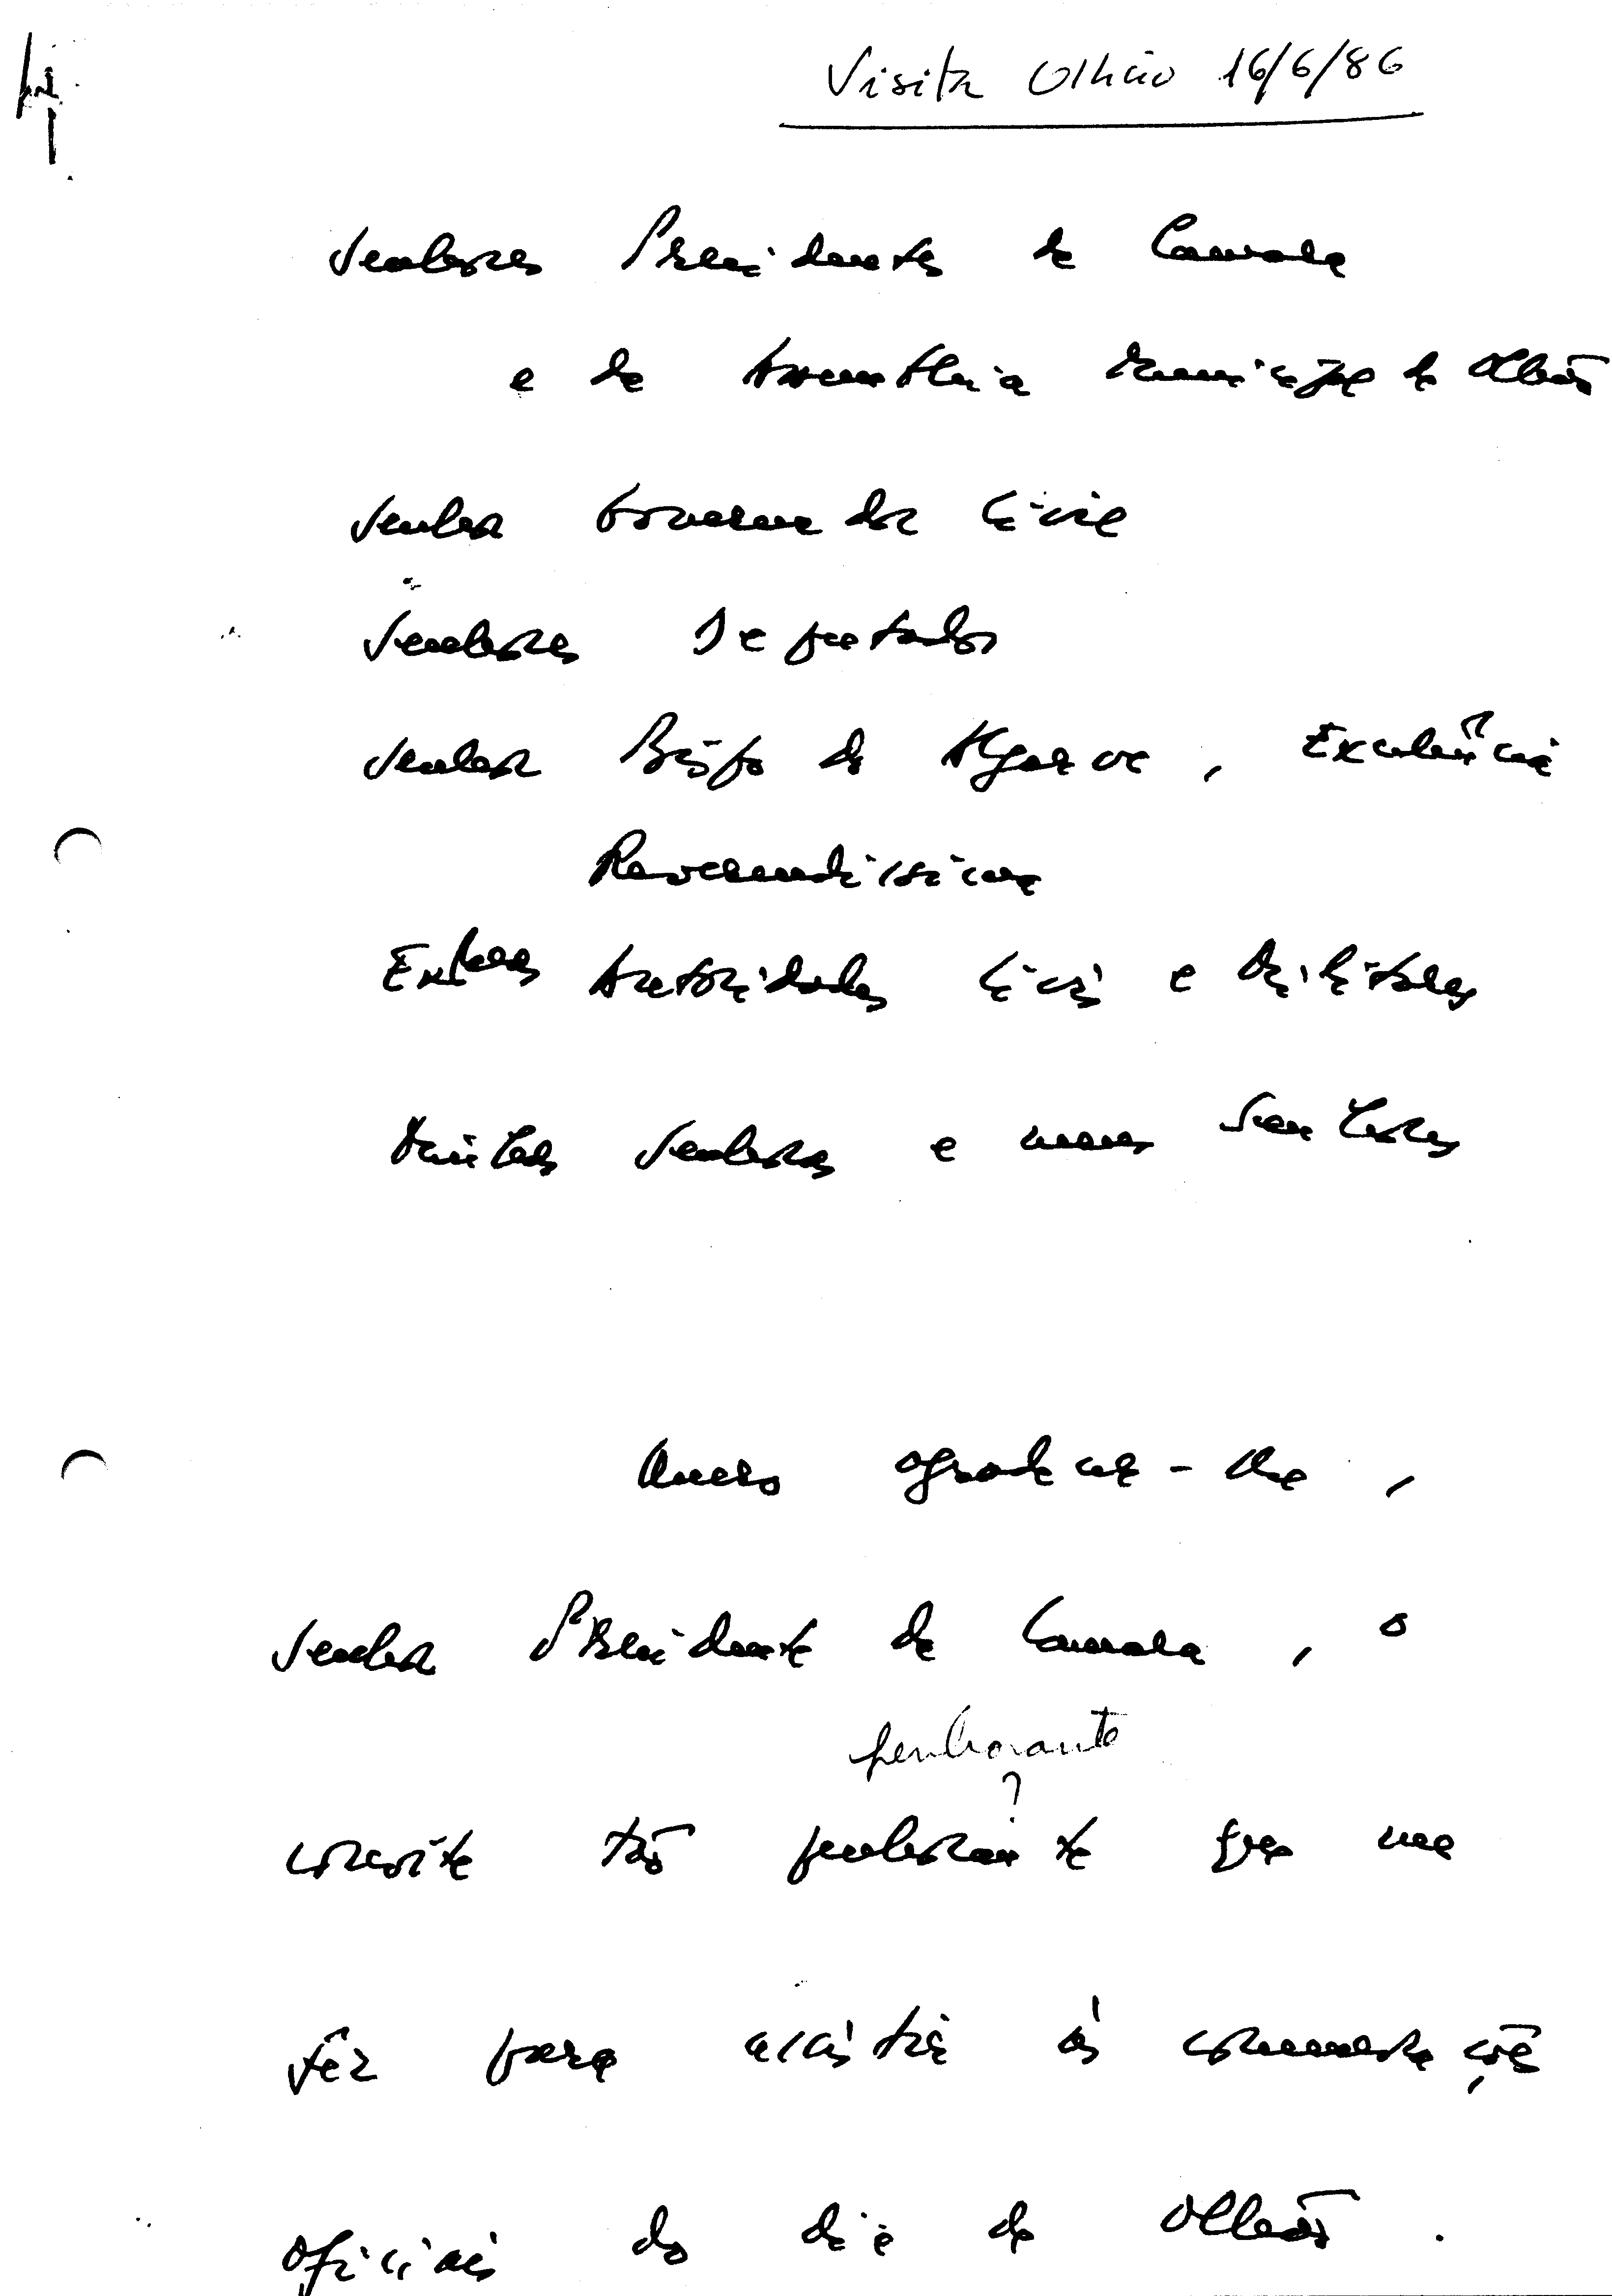 Visita Olhão 16/6/86
Senhores Presidentes da Camara
e da Assembleia Municipal de Olhão
Senhor Governador Civil
Senhores Deputados
Senhor Bispo do Algarve, Excelência
Reverendíssima
Exmas Autoridades Civis e Militares
Minhas Senhoras e meus Senhores
Quero agradecer-lhe,
Senhor Presidente da Camara, o
penhorante
?
convite tão penhorante que me
fêz para assistir às comemorações
oficiais do dia de Olhão.